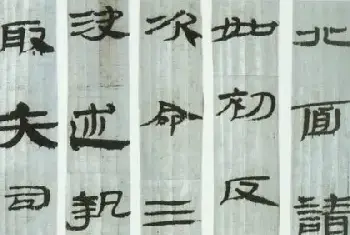 北面請
此初反
次命三
波述執
取夫司